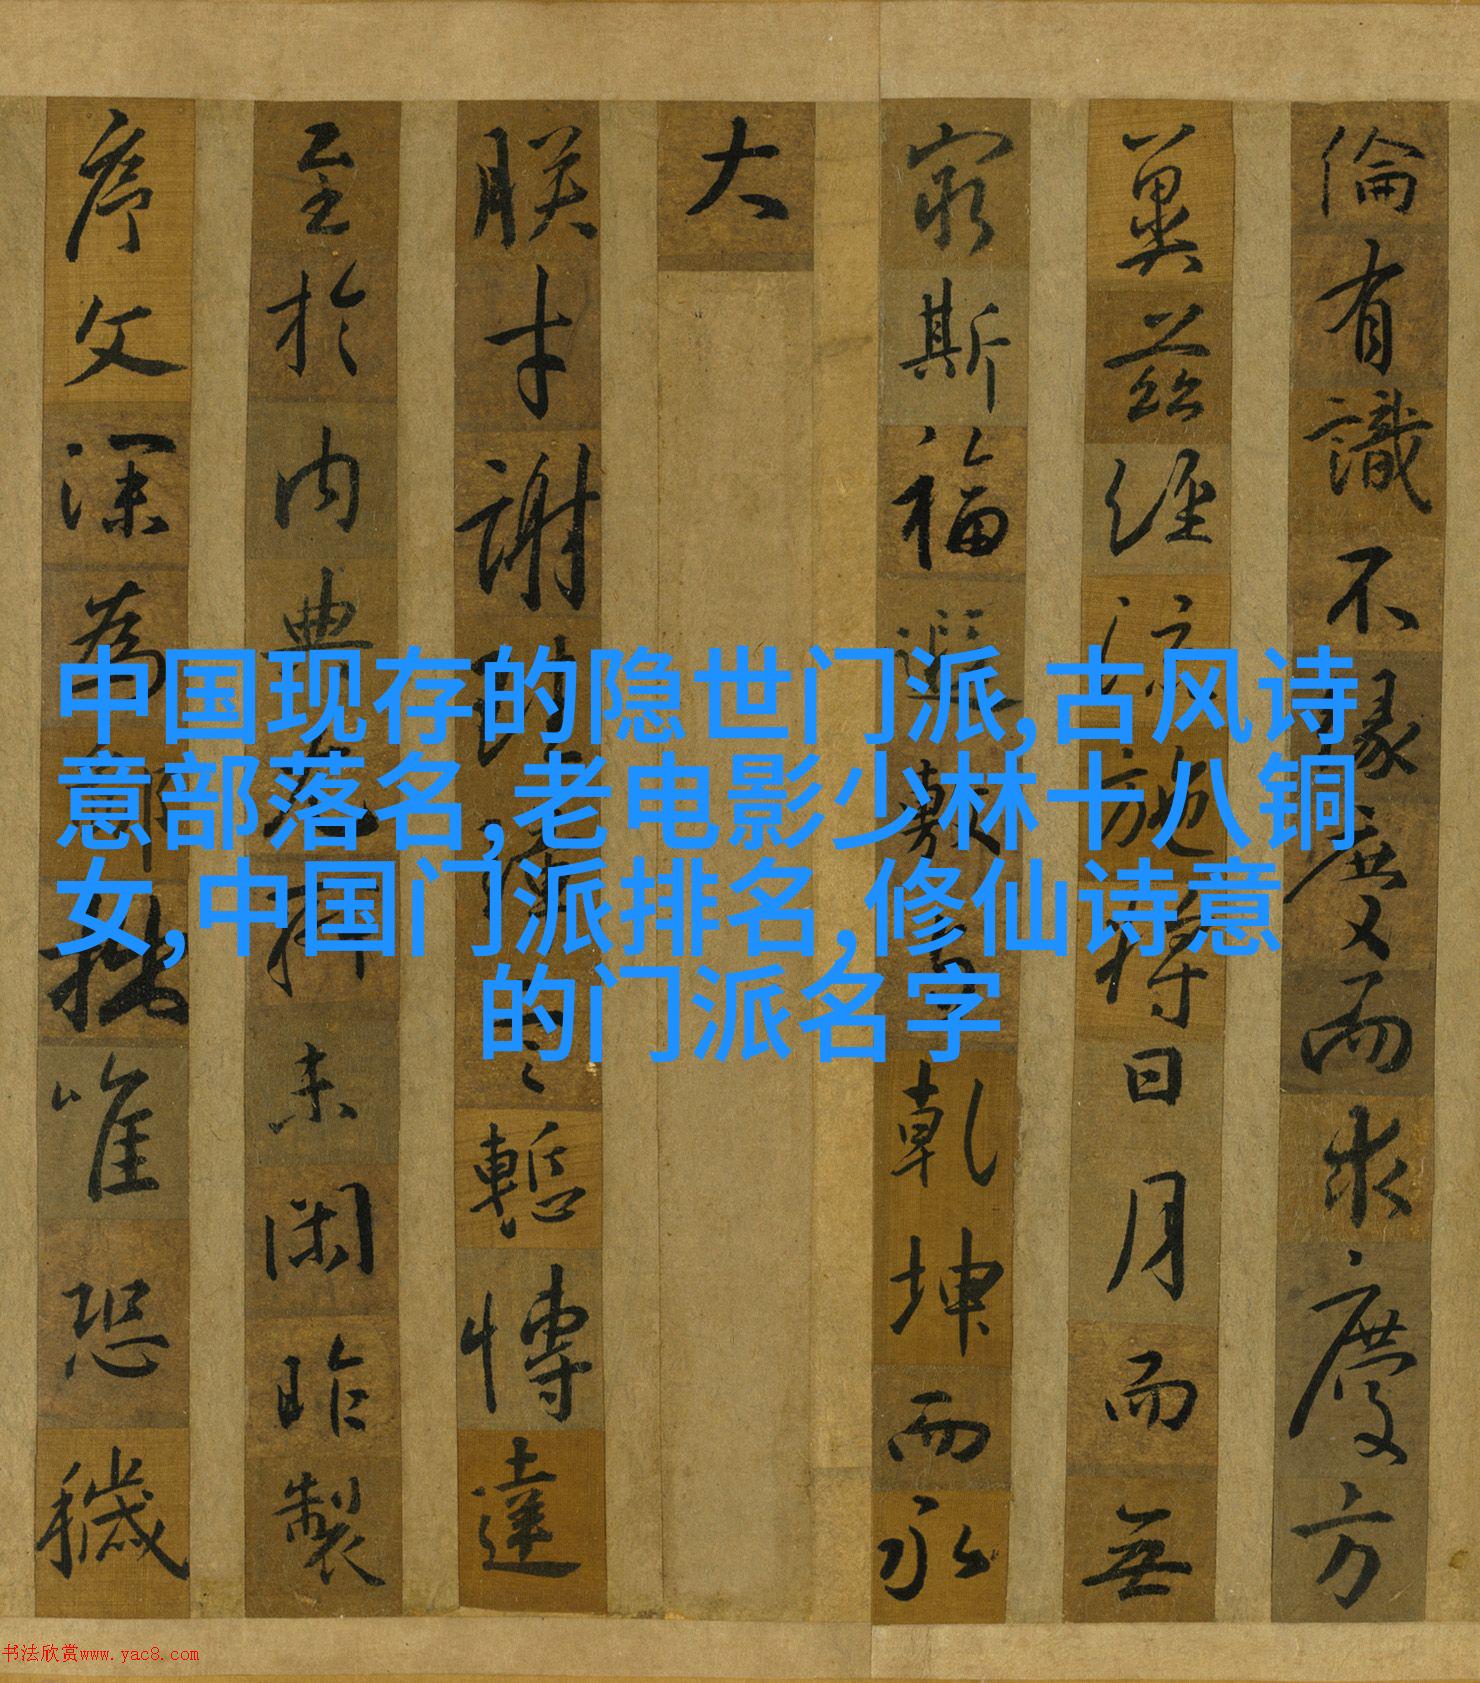 倫有識不緣慶而求慶方
冀茲經流施將日月而無
窮斯福遐敷乾坤而永
大
朕才謝言慙博達
至於內典未閑昨製
序文深為鄙拙唯恐穢
中国现存的隐世门派,古风诗
意部落名,老电影少林十八铜
女,中国门派排名,修仙诗意
的门派名字
书法欣赏www.yac8.com